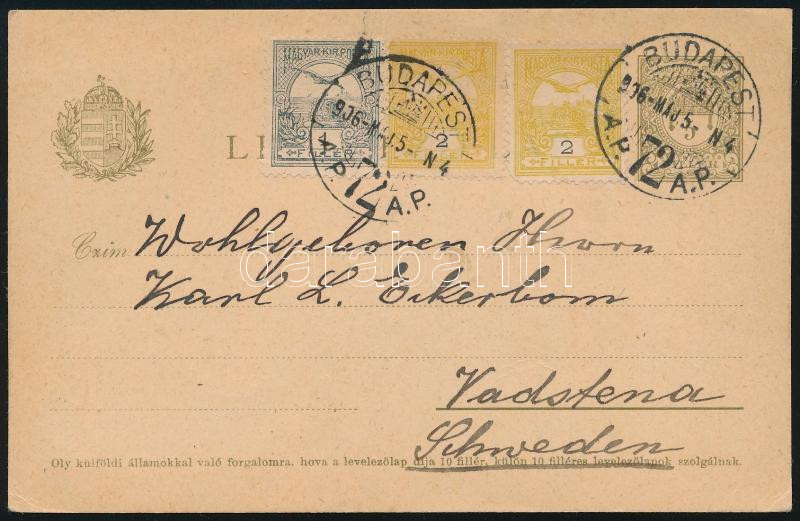 MAGYAR KIR. POSTA
1
FILLÉR
MAGYAR KIR. POSTA
2
MAGYAR KIR. POSTA
2
FILLÉR
BUDAPEST
906-MÁJ 5- N4
A.P. 72 A.P.
BUDAPEST
906-MÁJ 5- N4
A.P. 72 A.P.
Czim Wohlgeboren Herrn
Karl L. Eckerbom
darabanth
Vadstena
Schweden
Oly külföldi államokkal való forgalomra, hova a levelezőlap díja 10 fillér, külön 10 filléres levelezőlapok szolgálnak.